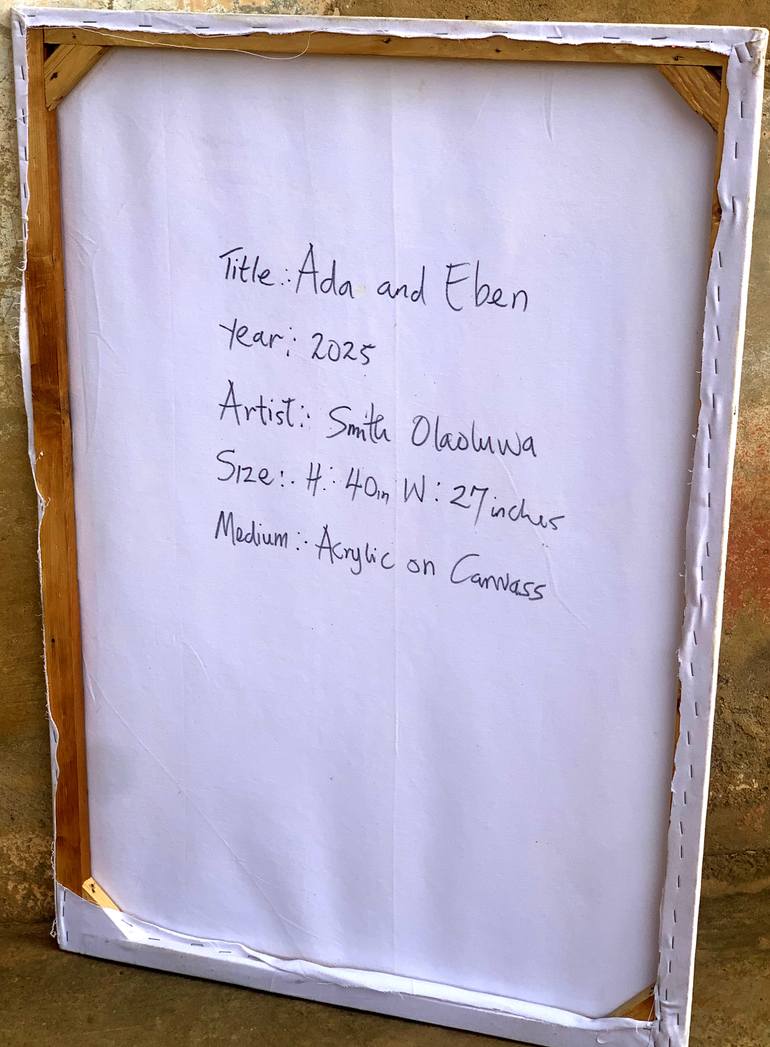 Title:. Ada and Eben
Year: 2025
Artist:. Smith Olaoluwa
Size:. H:. 40in W: 27 inches
Medium:. Acrylic on Canvass